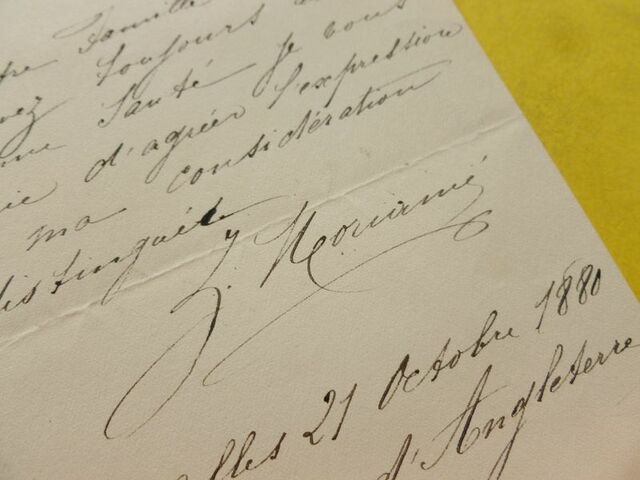 tre famille
vez toujours
me santé je vous
ie d'agréer l'expression
ma considération
distinguée
lles 21 Octobre 1880
d'Angleterre